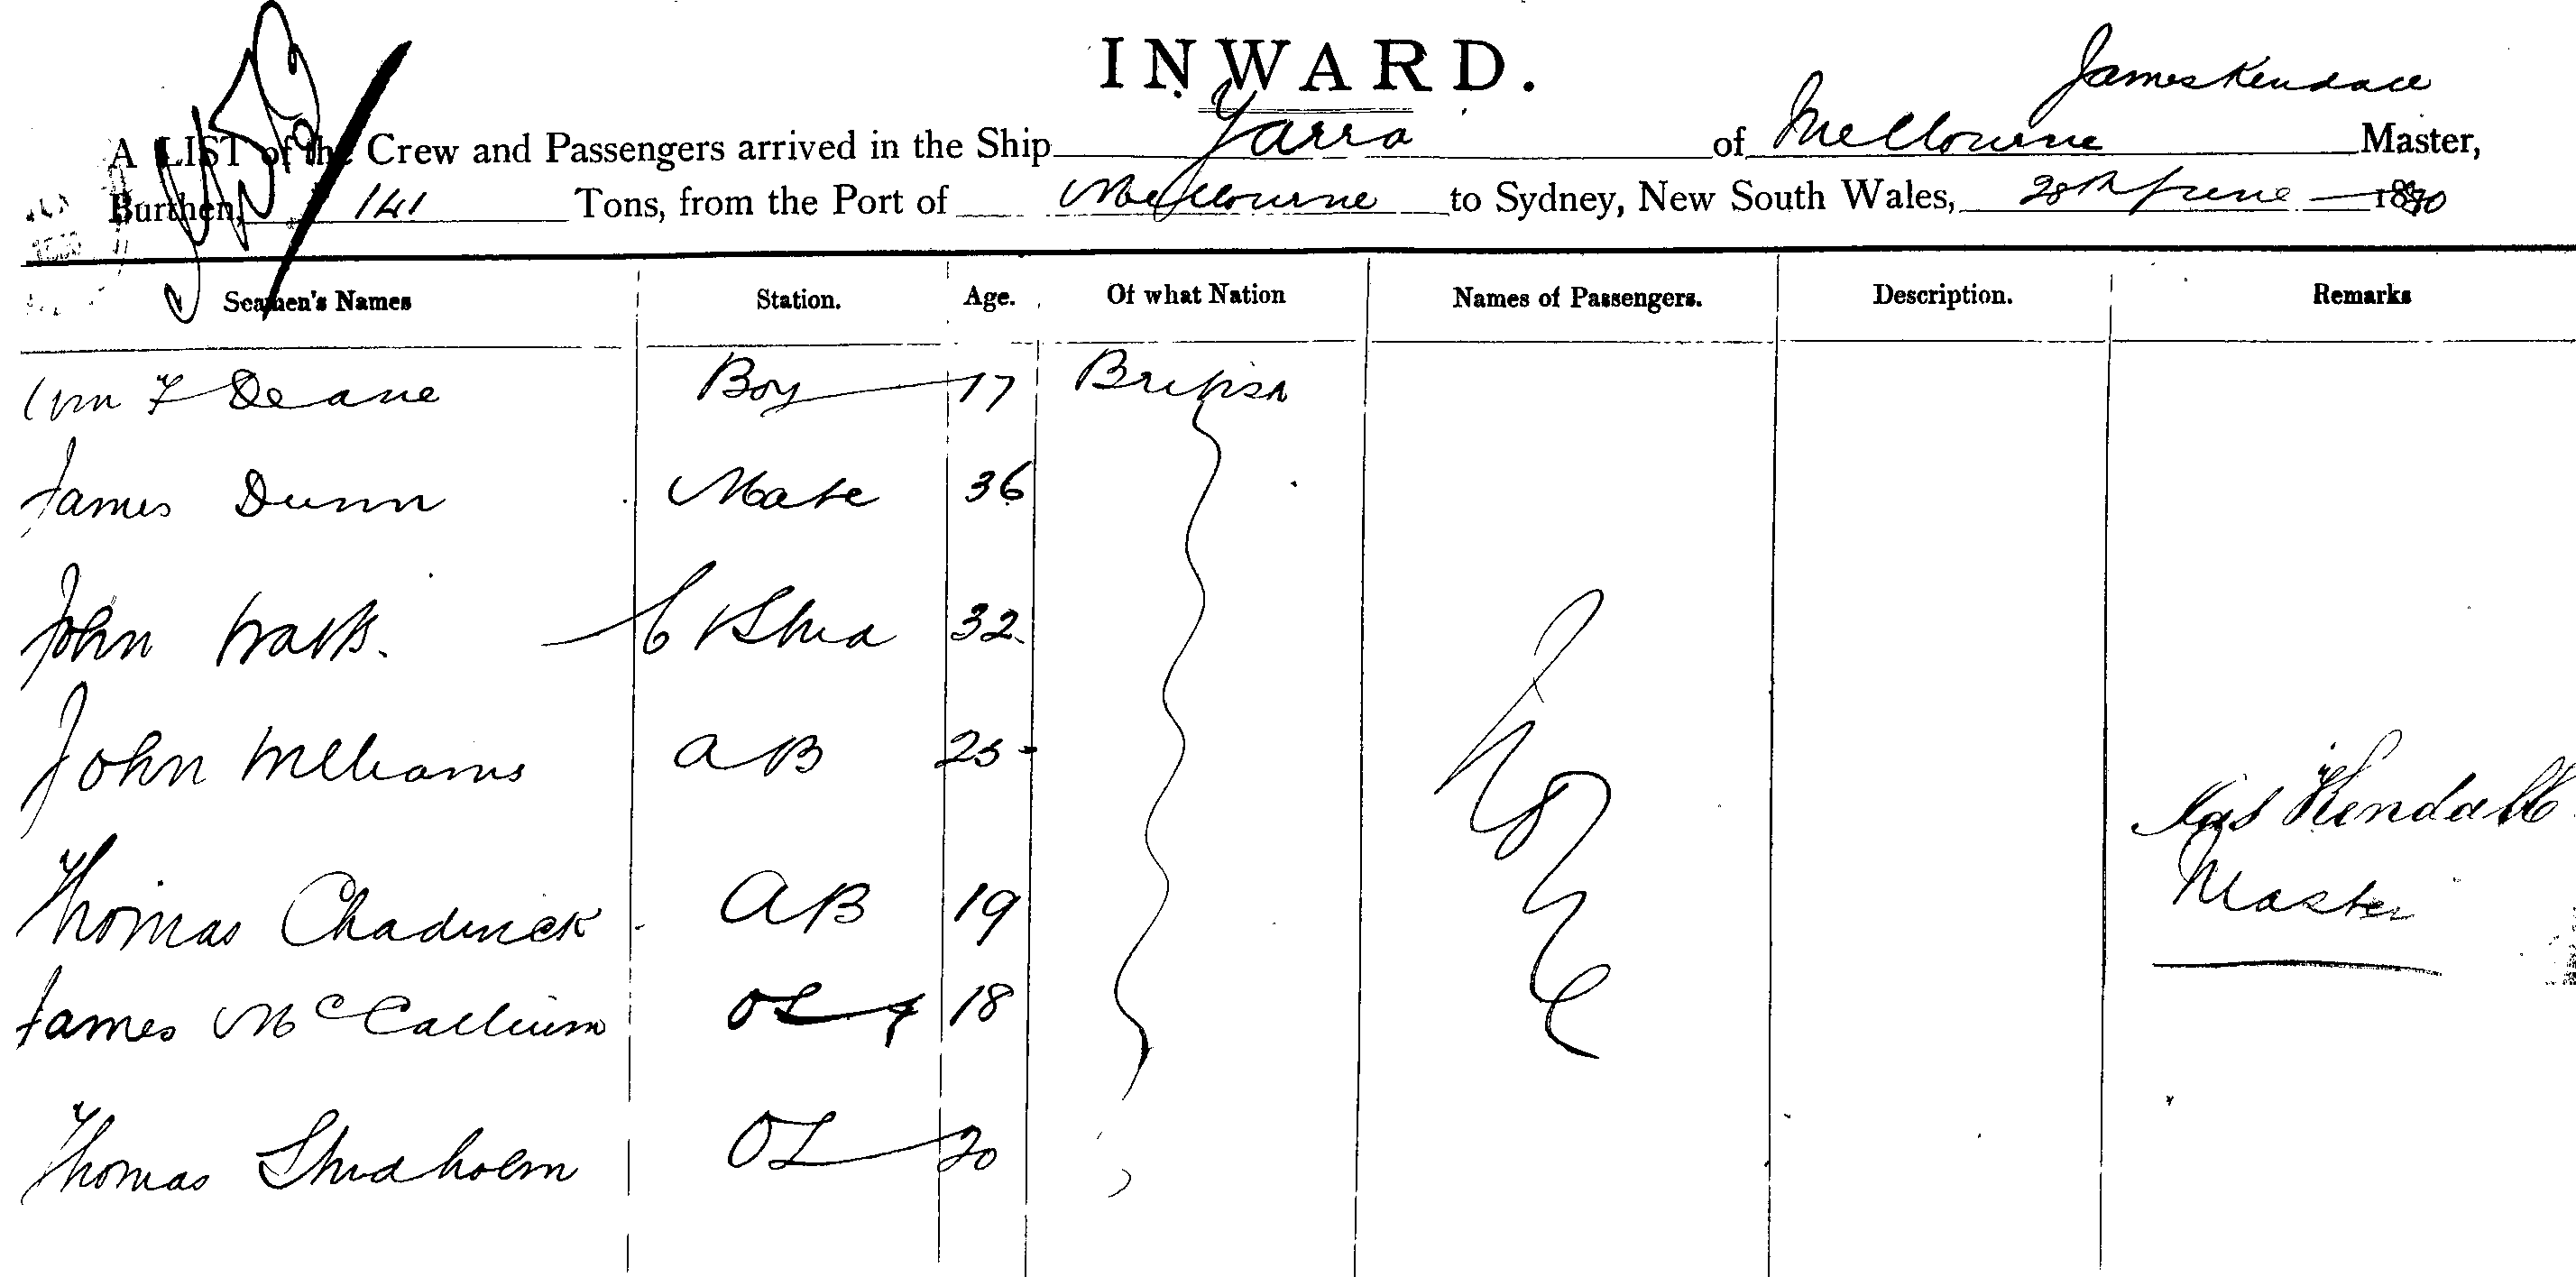 INWARD.
James Kendall
A LIST of the Crew and Passengers arrived in the Ship Yarra of Melbourne Master,
Burthen, 141 Tons, from the Port of Melbourne to Sydney, New South Wales, 28th June 1890
Seamen's Names Station. Age. Of what Nation Names of Passengers. Description. Remarks
Wm F Deane Boy 17 British
James Dunn Mate 36
John Watts. 32
John Williams AB 25
Jas Kendall
Thomas Chadwick AB 19
Master
James McCallum OS 18
None
Thomas OS 20